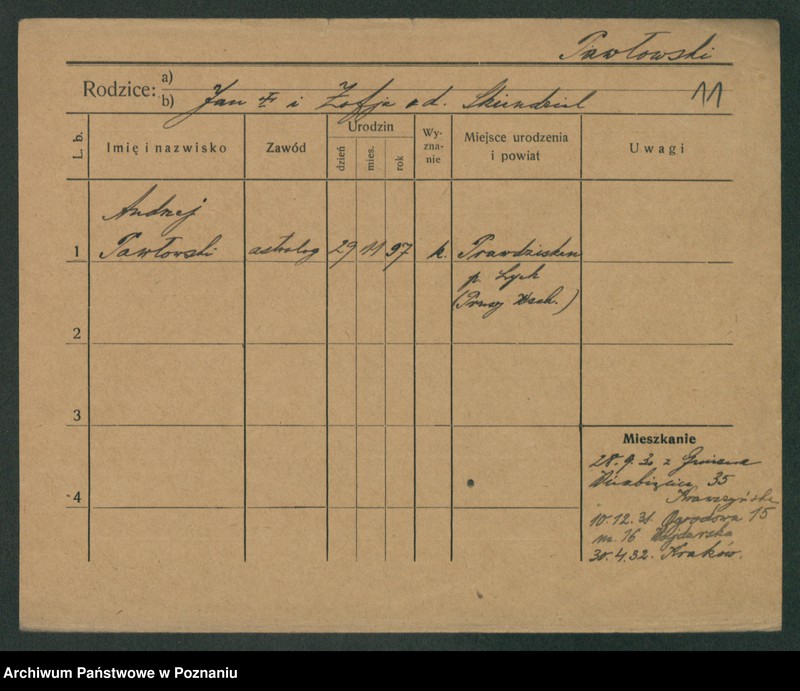 Pawłowski
Rodzice: a)
b) Jan i Zofja od. 11
L. b. Imię i nazwisko Zawód Urodzin dzień mies. rok Wy-zna-nie Miejsce urodzenia i powiat Uwagi
Andrzej
1 Pawłowski astrolog 29 11 97 k. Prawdzisken
p. Lyck
(Prusy Wsch.)
2
3
Mieszkanie
28.9.30 z
35
4
10.12.31. Ogrodowa 15
m. 16
30.4.32. Kraków.
Archiwum Państwowe w Poznaniu